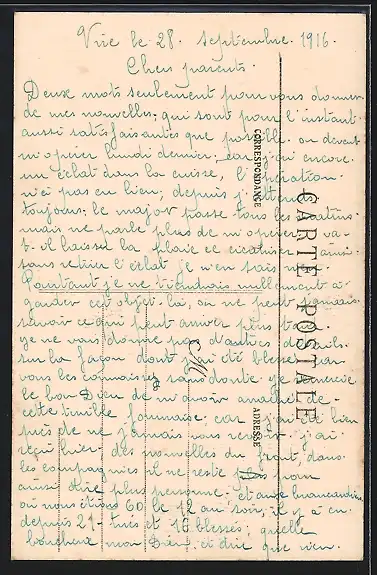 Vire le 28. septembre. 1916.
Chers parents.
Deux mots seulement pour vous donner
de mes nouvelles, qui sont pour l'instant
aussi satisfaisantes que possible. on devait
m'opérer lundi dernier, car j'ai encore
un éclat dans la cuisse, l'opération
n'a pas eu lieu, depuis j'attends
toujours. le major passe tous les matins
mais ne parle plus de m'opérer, va-
t-il laisser la plaie se cicatriser ainsi
sans retirer l'éclat je n'en sais rien
Pourtant je ne tiendrais nullement à
garder cet objet-là, on ne peut jamais
savoir ce qui peut arriver plus tard.
je ne vous donne pas d'autres détails
sur la façon dont j'ai été blessé car
vous les connaissez sans doute je remercie
le bon Dieu de m'avoir arraché de
cette terrible fournaise; car j'ai été bien
près de ne jamais vous revoir. j'ai
reçu hier des nouvelles du front, dans
les compagnies il ne reste pour
ainsi dire plus personne; et aux brancardiers
où nous étions 60 le 12 au soir, il y a eu
depuis 21 tués et 18 blessés; quelle
boucherie mon Dieu, et dire que rien.
CARTE POSTALE
CORRESPONDANCE
ADRESSE